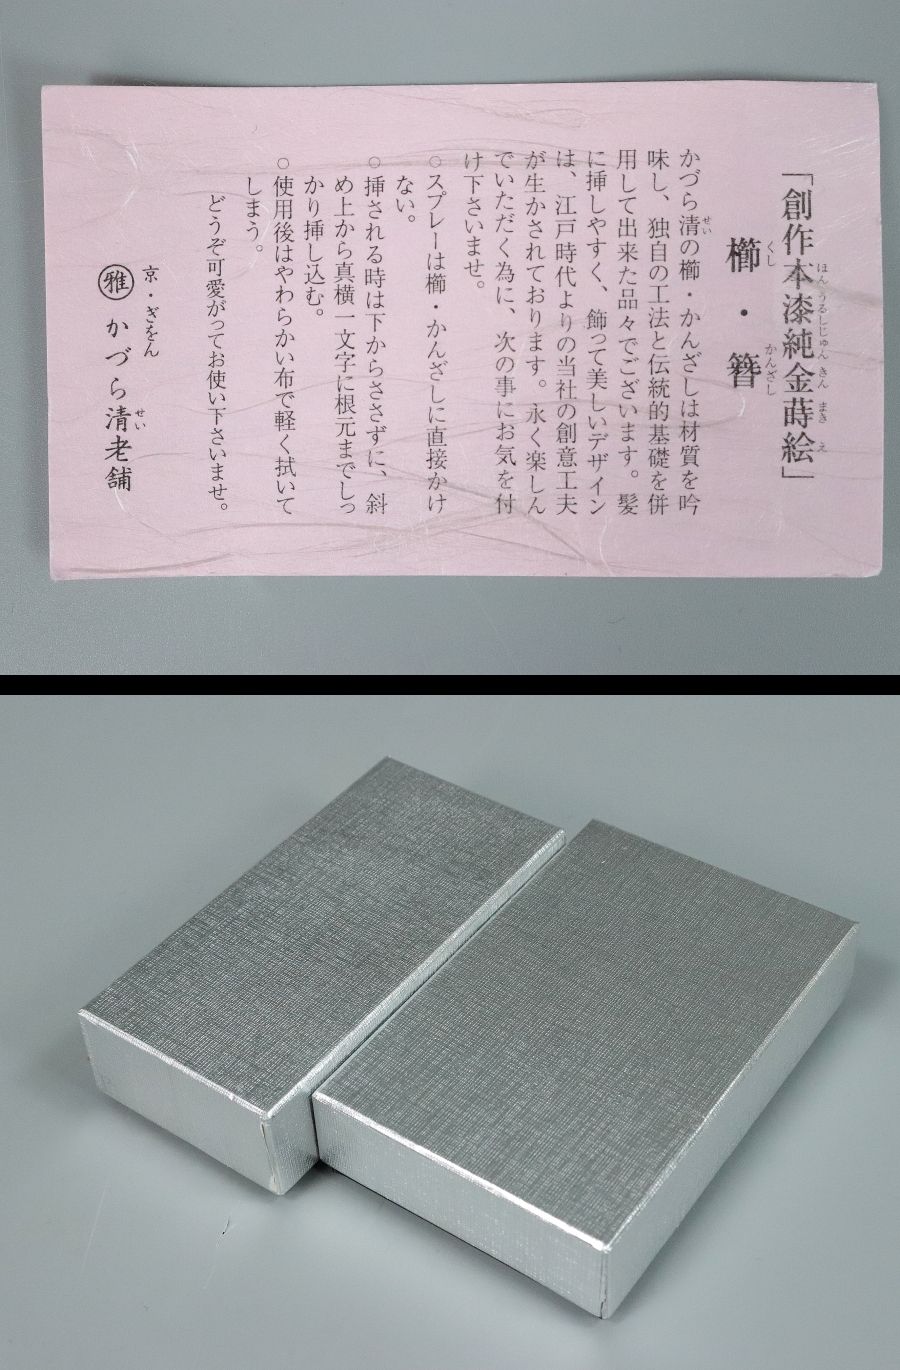 「創作本漆純金蒔絵」
櫛・簪
かづら清の櫛・かんざしは材質を吟
味し、独自の工法と伝統的基礎を併
用して出来た品々でございます。髪
に挿しやすく、飾って美しいデザイン
は、江戸時代よりの当社の創意工夫
が生かされております。永く楽しん
でいただく為に、次の事にお気を付
け下さいませ。
○スプレーは櫛・かんざしに直接かけ
ない。
○挿される時は下からささずに、斜
め上から真横一文字に根元までしっ
かり挿し込む。
○使用後はやわらかい布で軽く拭いて
しまう。
どうぞ可愛がってお使い下さいませ。
京・ぎをん
雅 かづら清老舗